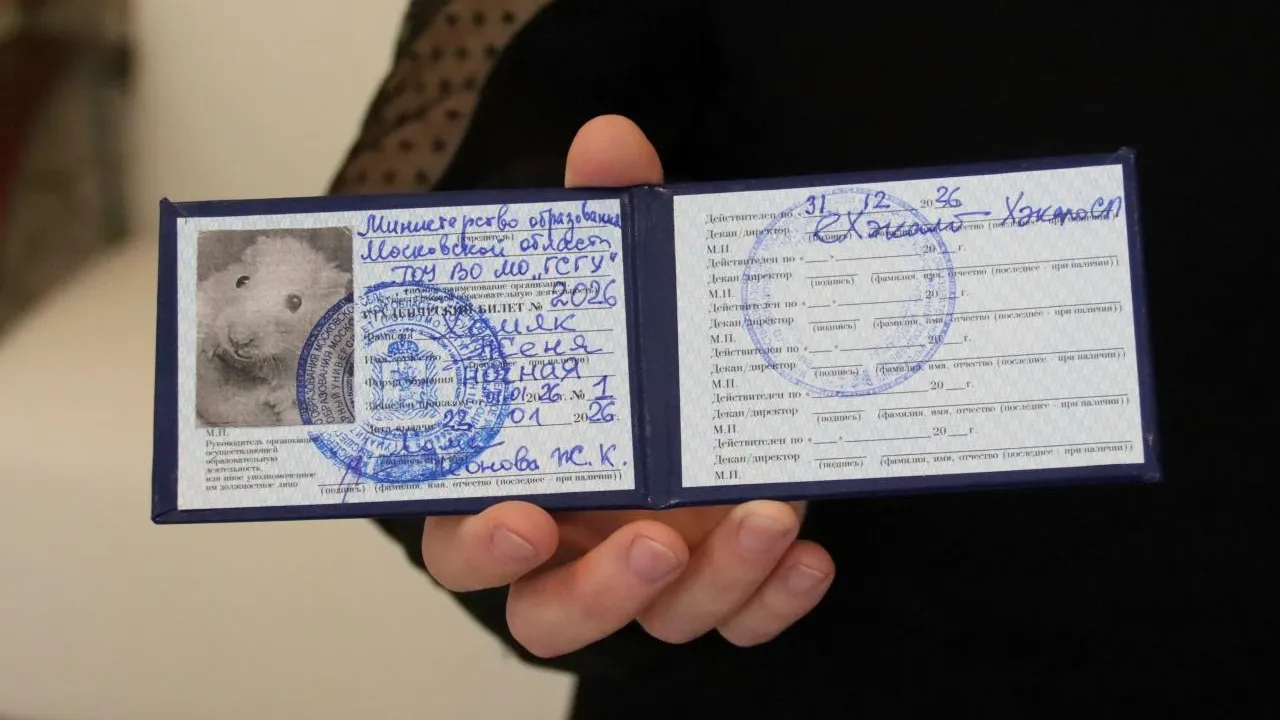 Министерство образования
(учредитель)
Московской области
ГОУ ВО МО „ГСГУ"
(полное наименование организации,
осуществляющей образовательную деятельность)
СТУДЕНЧЕСКИЙ БИЛЕТ № 2026
Фамилия Хомяк
Имя, отчество Женя
(последнее - при наличии)
Форма обучения очная
Зачислен приказом от 01.01.2026. № 1
Дата выдачи 22 01 2026.
Леонова Ж. К.
(подпись) (фамилия, имя, отчество (последнее - при наличии))
М.П.
Руководитель организации,
осуществляющей
образовательную
деятельность,
или иное уполномоченное
им должностное лицо
Действителен по «31 12 2036
Декан/директор
(подпись) (фамилия, имя, отчество (последнее - при наличии))
М.П.
Действителен по «___» 20___г.
Декан/директор
(подпись) (фамилия, имя, отчество (последнее - при наличии))
М.П.
Действителен по «___» 20___г.
Декан/директор
(подпись) (фамилия, имя, отчество (последнее - при наличии))
М.П.
Действителен по «___» 20___г.
Декан/директор
(подпись) (фамилия, имя, отчество (последнее - при наличии))
М.П.
Действителен по «___» 20___г.
Декан/директор
(подпись) (фамилия, имя, отчество (последнее - при наличии))
М.П.
Действителен по «___» 20___г.
Декан/директор
(подпись) (фамилия, имя, отчество (последнее - при наличии))
М.П.